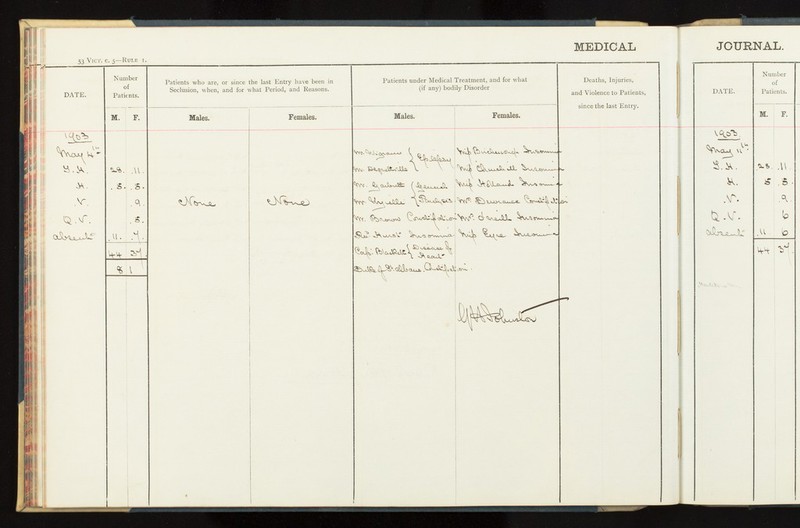 MEDICAL
53 Vict. c. 5—Rule 1.
DATE.
Number of Patients.
M. F.
Patients who are, or since the last Entry have been in Seclusion, when, and for what Period, and Reasons.
Males. Females.
Patients under Medical Treatment, and for what (if any) bodily Disorder
Males. Females.
Deaths, Injuries, and Violence to Patients, since the last Entry.
1903
May 4th
28. 11.
H. 5. 5.
V. 9.
Q.V. 5.
absent 11. 7.
44 37
8 1
None None
Epilepsy
Miss Insomnia
Miss Churchill Insomnia
General Paralysis
Miss Holland Insomnia
Mrs Constipation
Mr. Brown Constipation
Mrs O'Neill Insomnia
Hurst Insomnia
Miss Eyre Insomnia
Disease of Heart
Duke of St Albans. Constipation.
Johnston
JOURNAL.
DATE.
Number of Patients.
M. F.
1903
May 11th
28 11.
H. 5 5.
V. 9.
Q.V. 6
absent 11 6
44 37